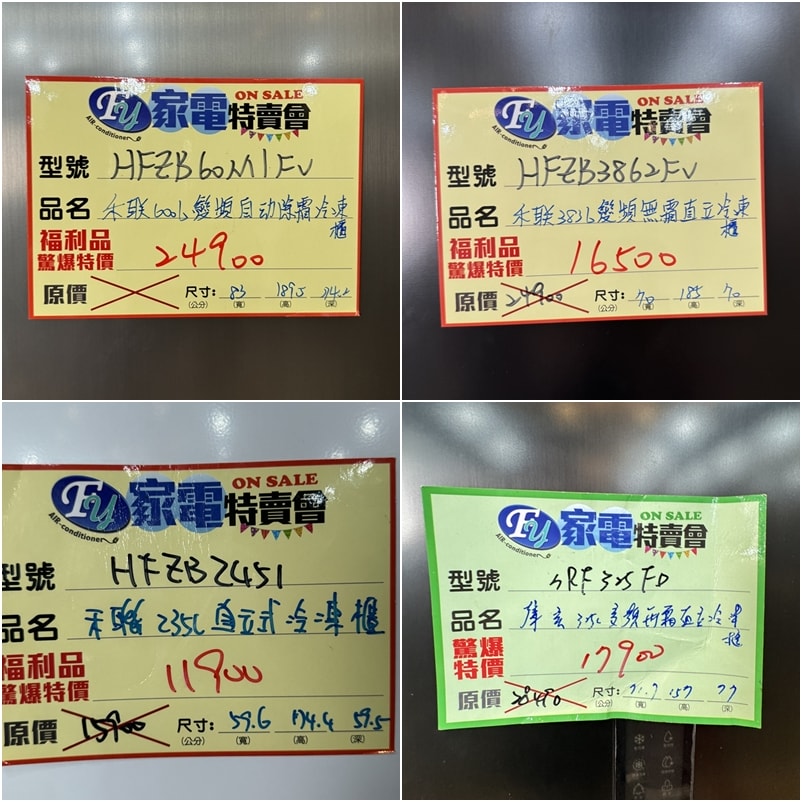 Fy AIR-conditioner 家電特賣會 ON SALE
型號 HFZB60M1FV
品名 禾联600L變頻自动除霜冷凍櫃
福利品
驚爆特價 24900
原價 尺寸: 83 189.5
(公分) (寬) (高) (深)
Fy AIR-conditioner 家電特賣會 ON SALE
型號 HFZB3862FV
品名 禾联383L變頻無霜直立冷凍櫃
福利品
驚爆特價 16500
原價 24900 尺寸: 70 185 70
(公分) (寬) (高) (深)
Fy AIR-conditioner 家電特賣會 ON SALE
型號 HFZB2451
品名 禾聯235L直立式冷凍櫃
福利品
驚爆特價 11900
原價 15900 尺寸: 59.6 174.4 59.5
(公分) (寬) (高) (深)
Fy AIR-conditioner 家電特賣會 ON SALE
型號
品名 冷凍櫃
驚爆
特價 17900
原價 尺寸: 71.7 157 77
(公分) (寬) (高) (深)